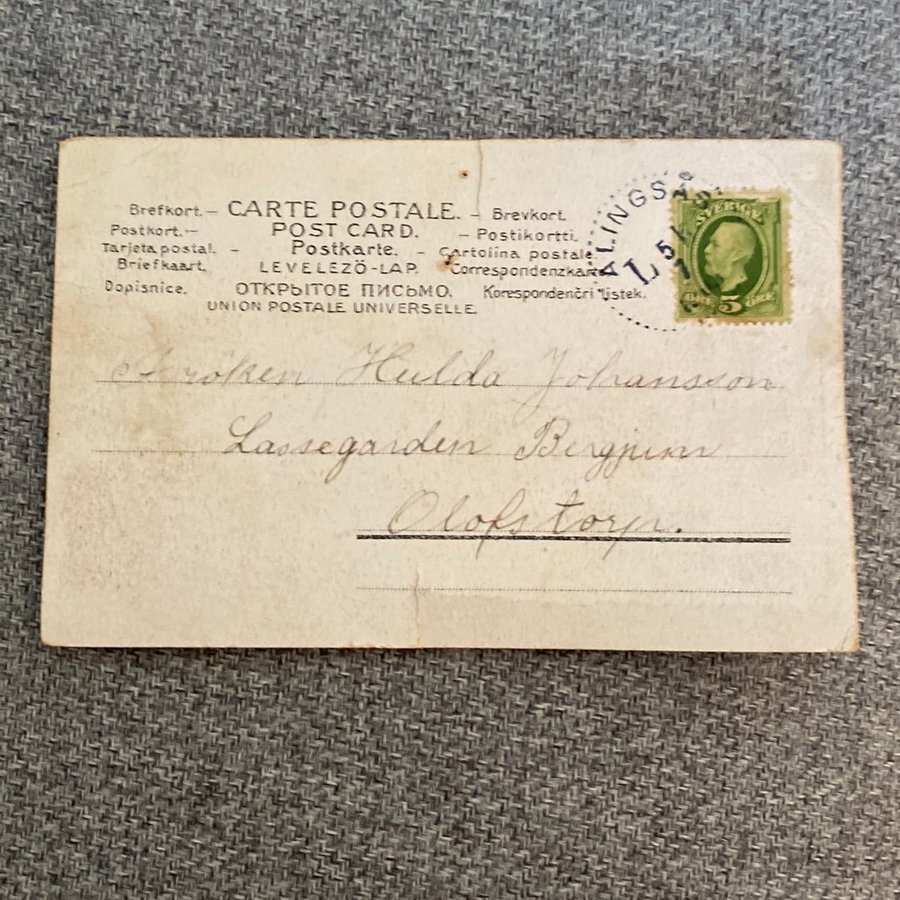 Brefkort. — CARTE POSTALE. — Brevkort.
Postkort. — POST CARD. — Postikortti.
Tarjeta postal. — Postkarte. — Cartolina postale.
Briefkaart. LEVELEZÖ-LAP. Correspondenzkarte
Dopisnice. ОТКРЫТОЕ ПИСЬМО. Korespondenčri listek.
UNION POSTALE UNIVERSELLE.
ALINGSÅS
SVERIGE
ÖRE 5 ÖRE
Fröken Hulda Johansson
Lassegarden Bergjum
Olofstorp.